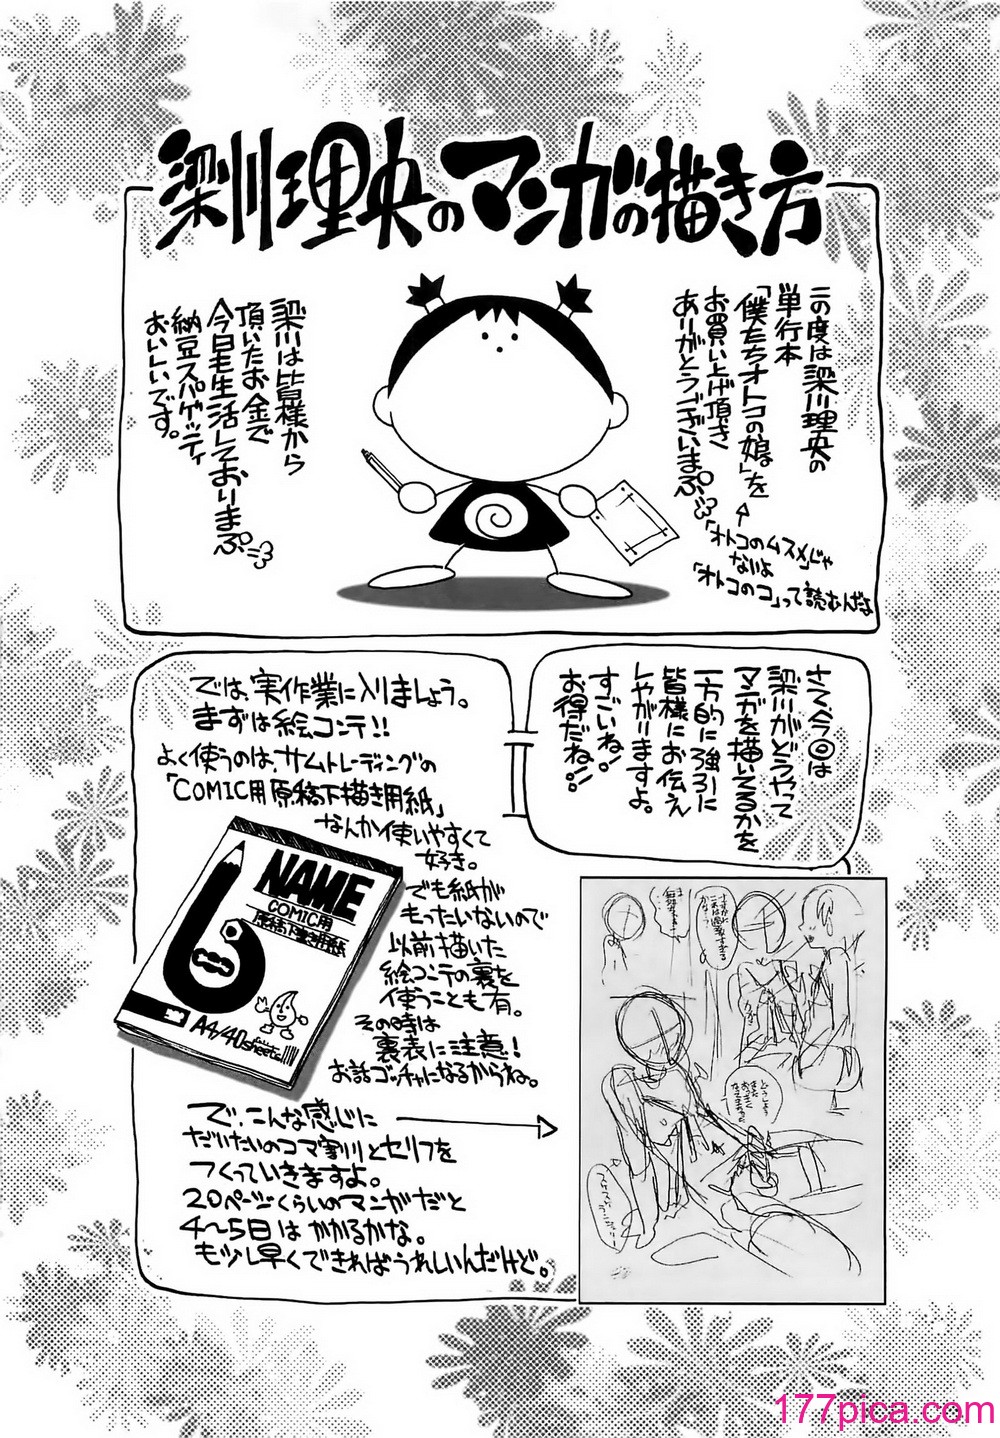 梁川理央のマンガの描き方
この度は梁川理央の
単行本
「僕たちオトコの娘」を
お買い上げ頂き
ありがとうございまぷ
↑
「オトコのムスメ」じゃ
ないよ
「オトコのコ」って読むんだよ
梁川は皆様から
頂いたお金で
今日も生活しておりまぷ
納豆スパゲッティ
おいしいです。
さて、今回は
梁川がどうやって
マンガを描いてるかを
一方的に強引に
皆様にお伝え
しやがりますよ。
すごいね!
お得だね!!
では、実作業に入りましょう。
まずは絵コンテ!!
よく使うのは、サムトレーディングの
「COMIC用原稿下描き用紙」
なんか使いやすくて
好き。
でも紙が
もったいないので
以前描いた
絵コンテの裏を
使うことも有。
その時は
裏表に注意!
お話ゴッチャになるからね。
NAME
COMIC用
原稿下書き用紙
A4/40sheets
で、こんな感じに
だいたいのコマ割りとセリフを
つくっていきますよ。
20ページくらいのマンガだと
4〜5日はかかるかな。
もう少し早くできればうれしいんだけど。
177pica.com